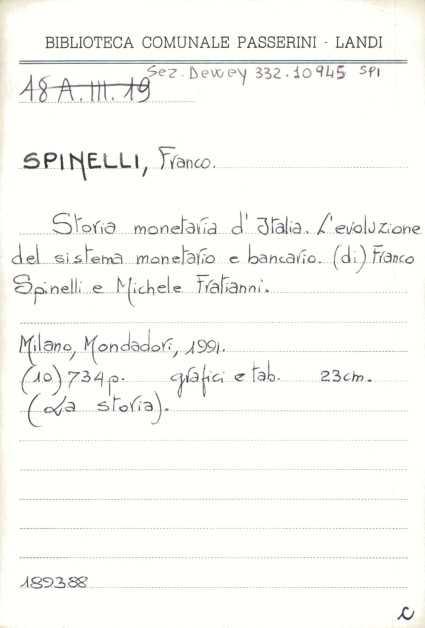 BIBLIOTECA COMUNALE PASSERINI - LANDI
Sez. Dewey 332.10945 SPI
48 A. III. 19
SPINELLI, Franco.
Storia monetaria d'Italia. L'evoluzione
del sistema monetario e bancario. (di) Franco
Spinelli e Michele Fratianni.
Milano, Mondadori, 1991.
(10) 734 p. grafici e tab. 23 cm.
(La storia).
189388
C